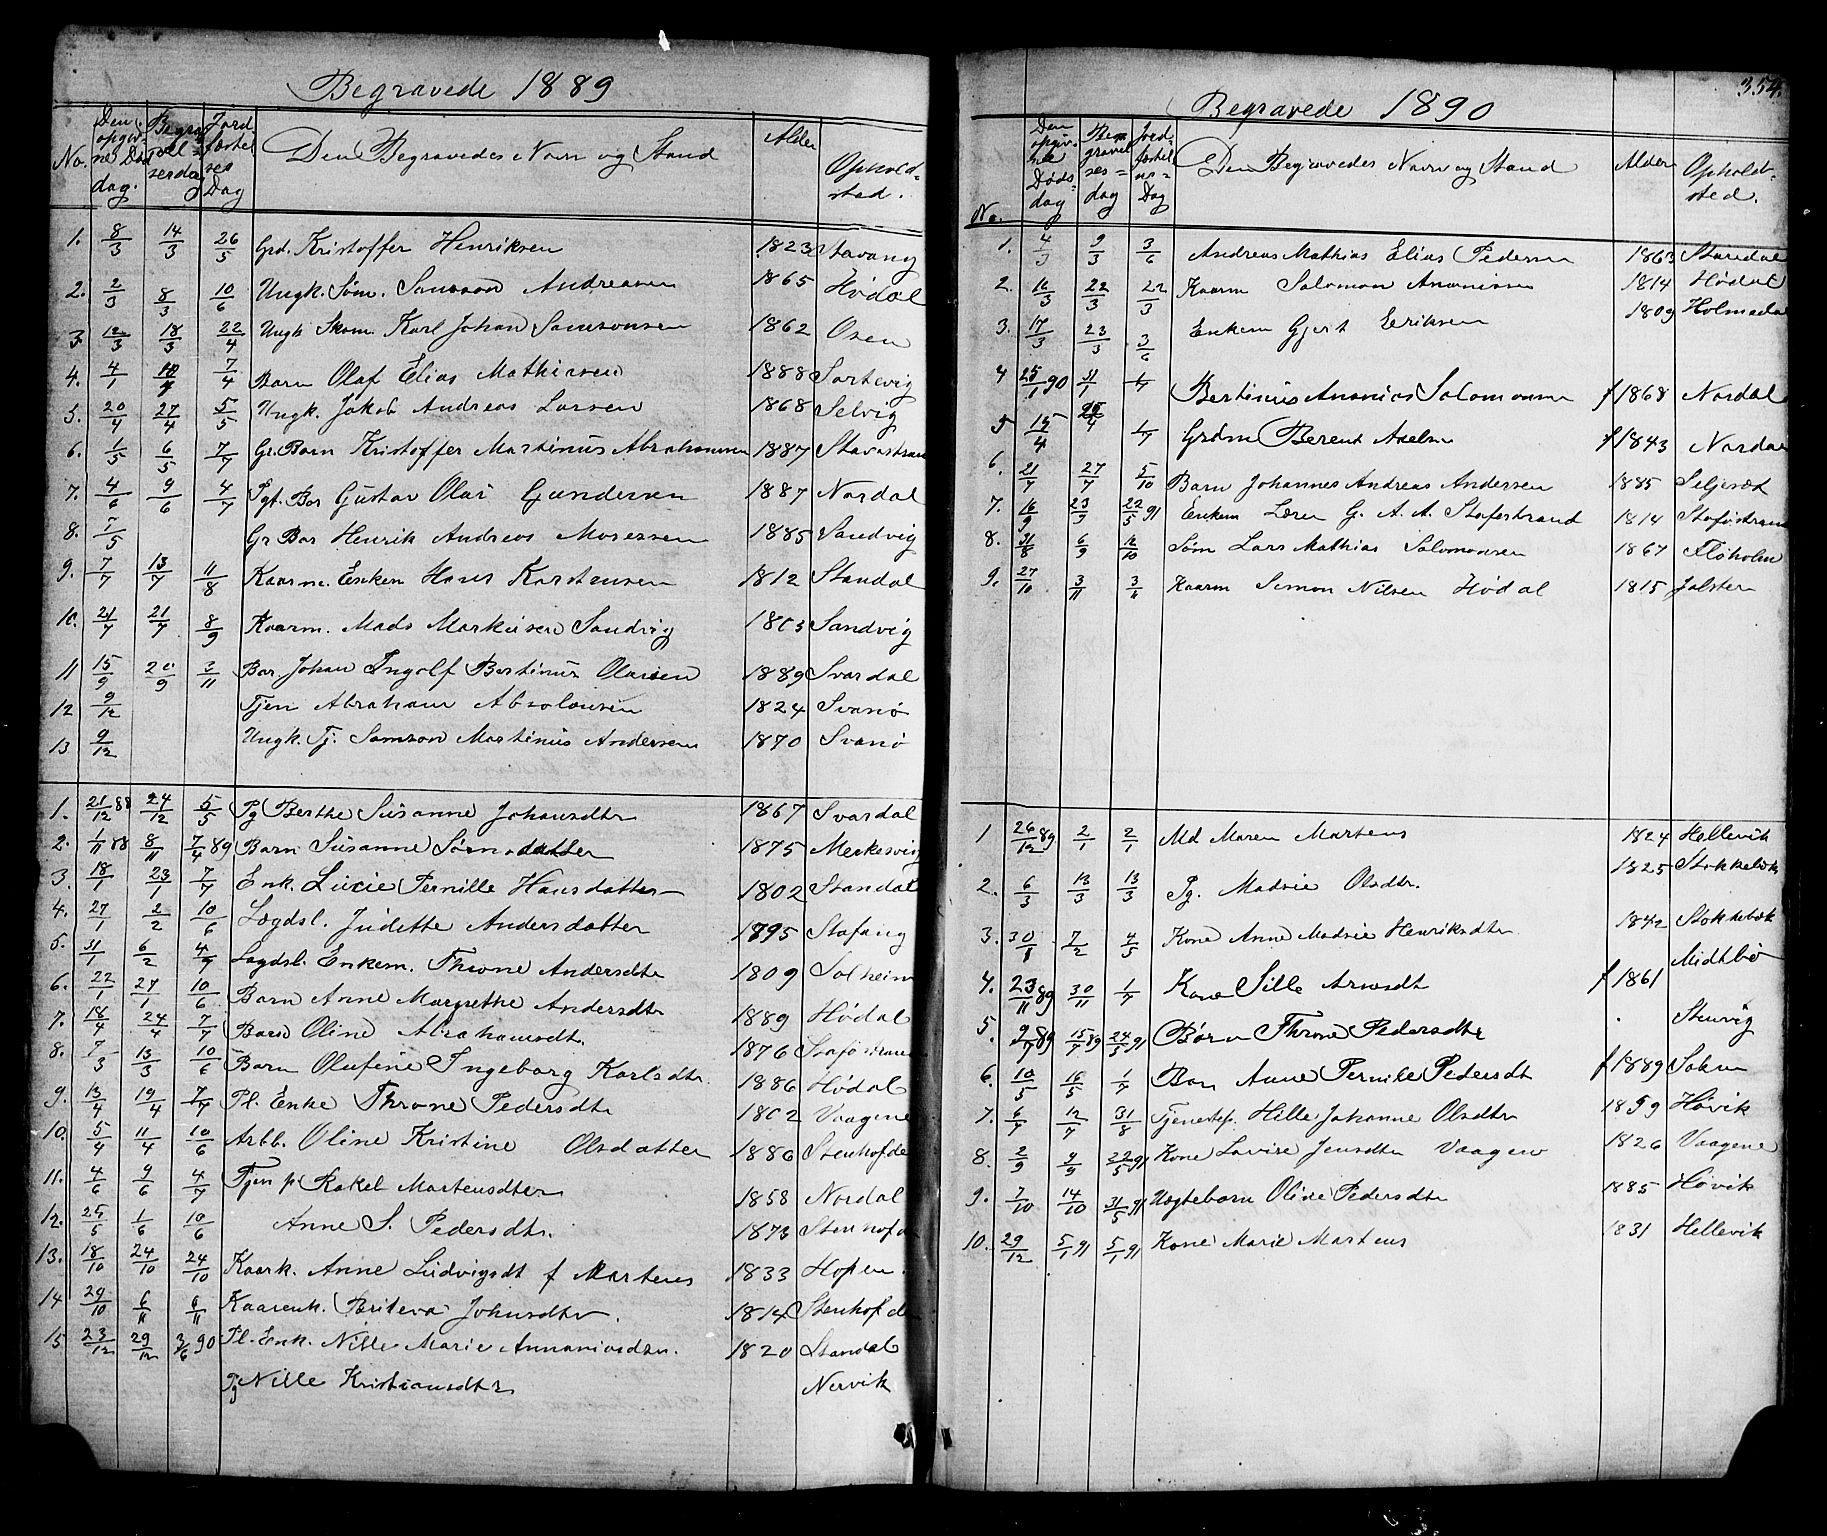 Begravede 1889
No. Den opgivne Døds dag. Begravelsesdag Jordfæstelses Dag Den Begravedes Navn og Stand Alder Opholdsted.
1. 8/3 14/3 26/5 Grd. Kristoffer Henriksen 1823 Stavang
2. 2/3 8/3 10/6 Ungk. Søm. Samson Andreasen 1865 Hødal
3 12/3 18/3 22/4 Ungk Skom. Karl Johan Samsonsen 1862 Osen
4. 4/1 10/1 7/4 Barn Olaf Elias Mathiasen 1888 Sortevig
5. 20/4 27/4 5/5 Ungk. Jakob Andreas Larsen 1868 Selvig
6. 1/5 6/5 7/7 Gr. Barn Kristoffer Martinus Abrahamsen 1887
7. 4/6 9/6 4/7 Gustav Olai Gundersen 1887 Nordal
8. 7/5 Gr Bar Henrik Andreas Mosessen 1885 Sandvig
9. 7/7 13/7 11/8 Kaarm. Enkem Hans Karstensen 1812 Standal
10. 21/7 21/7 8/9 Kaarm. Mads Markusen Sandvig 1803 Sandvig
11 15/9 20/9 3/11 Bar. Johan Ingolf Bertinus Olaisen 1889 Svardal
12 9/12 Tjen Abraham Absolonsen 1824 Svanø
13 9/12 Ungk. Tj. Samson Martinus Andersen 1870 Svanø
1. 21/12 88 24/12 5/5 Pg Berthe Susanne Johansdtr 1867 Svardal
2. 1/11 88 8/11 7/4 89 Barn Susanne Sørnsdatter 1875 Merkesvig
3. 18/1 23/1 7/7 Enk. Lucie Pernille Hansdatter 1802 Standal
4. 27/1 2/2 10/6 Lægdsl. Judette Andersdatter 1795 Stafang
5. 31/1 6/2 4/9 Lægdsl. Enkem. Throne Andersdtr 1809 Solheim
6. 22/1 27/1 10/6 Barn Anne Margrethe Andersdtr 1889 Hødal
7. 18/4 24/4 7/7 Barn Oline Abrahamsdt. 1876
8. 7/3 13/3 10/6 Barn Olufine Ingeborg Karlsdtr. 1886 Hødal
9. 13/4 19/4 7/7 Pl. Enke Throne Pedersdtr 1802 Vaagene
10. 5/4 11/4 10/6 Arbb. Oline Kristine Olsdatter 1886 Stenhofde
11. 4/6 9/6 4/7 Tjen p Rakel Martensdter 1858 Nordal
12. 25/5 1/6 10/6 Anne S. Pedersdtr. 1873 Stenhofd
13. 18/10 24/10 24/10 Kaark. Anne Ludvigsdt f Martens 1833 Hopen.
14 29/10 6/11 6/11 Kaarenk. Beriteva Johnsdtr. 1814 Stenhofde
15 23/12 29/12 3/6 90 Pl. Enk. Nille Marie Annaniasdtr. 1820 Standal
Pg Nille Kristiansdtr Nervik
354.
Begravede 1890
No. Den opgivne Dødsdag Begravelsesdag Jordfæstelses Dag Den Begravedes Navn og Stand Alder Opholdsted.
1. 4/3 9/3 3/6 Andreas Mathias Elias Pedersen 1863 Standal
2. 16/3 22/3 22/3 Kaarm Salomon Ananiasen 1814 Hødal
3. 17/3 23/3 3/6 Enkem Gjert Eeriksen 1809 Holmedal
4 25/1 90 31/1 1/7 Bertinus Ananias Salomonsen f 1868 Nordal
5 19/4 26/4 1/7 Grdm Berent Axelsen f 1843 Nordal
6. 21/7 27/7 5/10 Barn Johannes Andreas Andersen 1885 Seljesæt
7. 16/9 23/9 22/5 91 Enkem G. A. A. Stafestrand 1814
8. 31/8 6/9 12/10 Søm Lars Mathias Salomonsen 1867 Floholm
9. 27/10 3/11 3/11 Kaarm Simon Nilsen Hødal 1815 Jølster
1 26/12 89 2/1 2/1 Md Maren Martens 1824 Hellevik
2. 6/3 13/3 13/3 Pg. Madsie Olsdtr. 1825 Stokkebæk
3. 30/1 7/2 4/5 Kone Anne Madsie Henriksdtr 1842 Stokkebæk
4. 23/11 89 30/11 1/7 Kone Sille Arnesdt f 1861 Midtbø
5. 9/7 89 15/7 89 24/5 91 Børn Throne Pedersdtr Stenvig
6. 10/5 16/5 1/7 Barn Anne Pernille Pedersdt f 1889 Solem
7. 6/7 12/7 31/8 Tjenestep. Hille Johanne Olsdtr 1859 Høvik
8. 2/9 9/9 22/5 91 Kone Lovise Jensdtr Vaagen 1826 Vaagene
9. 7/10 14/10 31/5 91 Uægtebarn Oline Pedersdtr 1885 Høvik
10. 29/12 5/1 91 5/1 91 Kone Marie Martens 1831 Hellevik